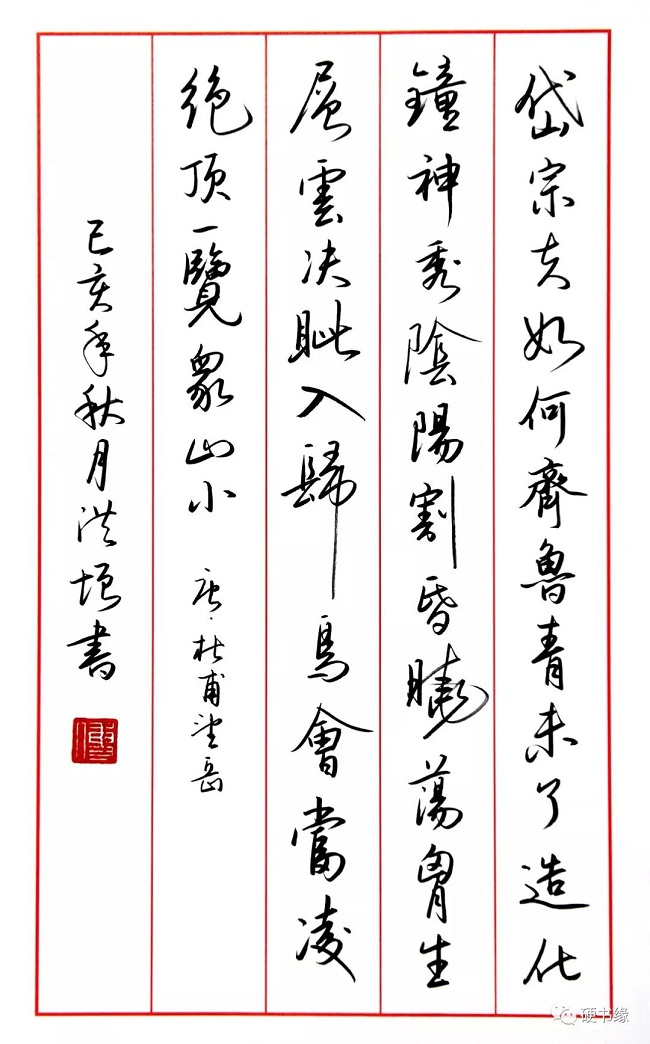 岱宗夫如何齊魯青未了造化
鐘神秀陰陽割昏曉蕩胷生
層雲决眦入歸鳥會當凌
絶顶一覽眾山小 唐·杜甫望岳
己亥年秋月洪書
硬书缘